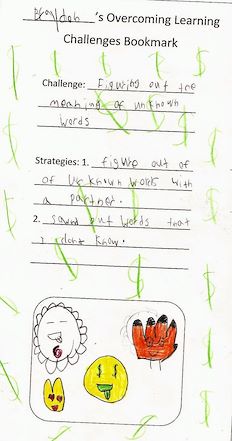 's Overcoming Learning
Challenges Bookmark
Challenge: Figuring out the
meaning of unknown
words
Strategies: 1. figure out of
of unknown words with
a partner.
2. sound out words that
I dont know.